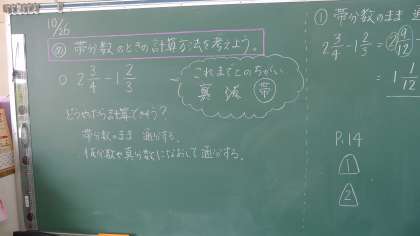 10/26
め 帯分数のときの計算方法を考えよう。
○ 2 3/4 - 1 2/3
これまでとのちがい
真 仮 帯
どうやったら計算できそう?
帯分数のまま 通分する。
仮分数や真分数になおして通分する。
① 帯分数のまま
2 3/4 - 1 2/3 = 2 9/12 -
= 1 1/12
P.14
1
2